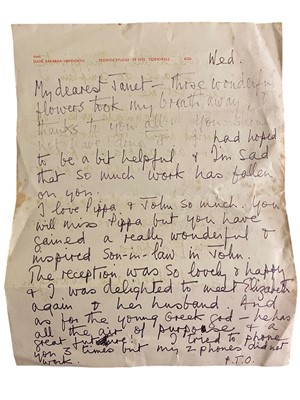 DAME BARBARA HEPWORTH TREWYN STUDIO ST IVES CORNWALL
Wed.
My dearest Janet - Those wonderful
flowers took my breath away,
thanks to you all. You
not have done it had hoped
to be a bit helpful & I'm sad
that so much work has fallen
on you.
I love Pippa & John so much. You
will miss Pippa but you have
gained a really wonderful &
inspired Son-in-law in John.
The reception was so lovely & happy
& I was delighted to meet Elizabeth
again & her husband. And
as for the young Greek God - he has
all the air of purpose & a
great future! I tried to phone
you 3 times but my 2 phones did not
work. P.T.O.